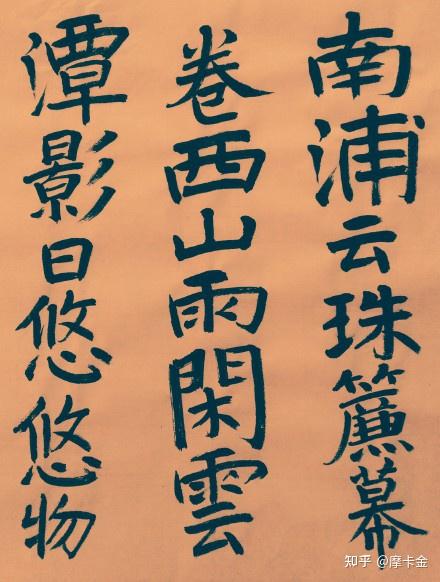 南浦云珠簾幕
卷西山雨閑雲
潭影日悠悠物
知乎 @摩卡金